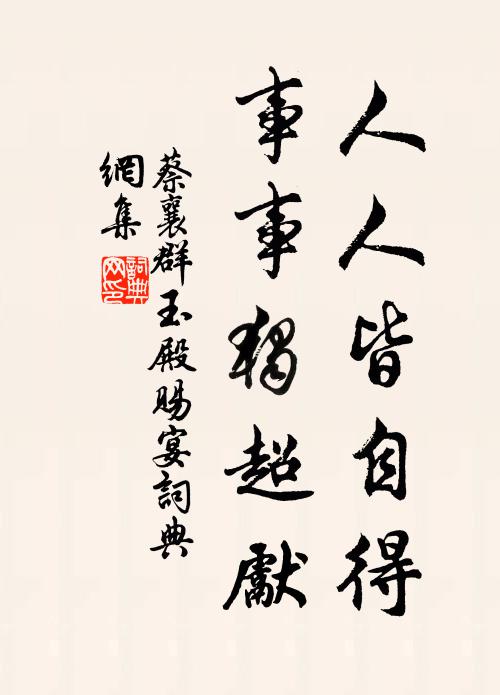 人人皆自得
事事獨超獻
蔡襄群玉殿賜宴詞典
網集
詞典網印